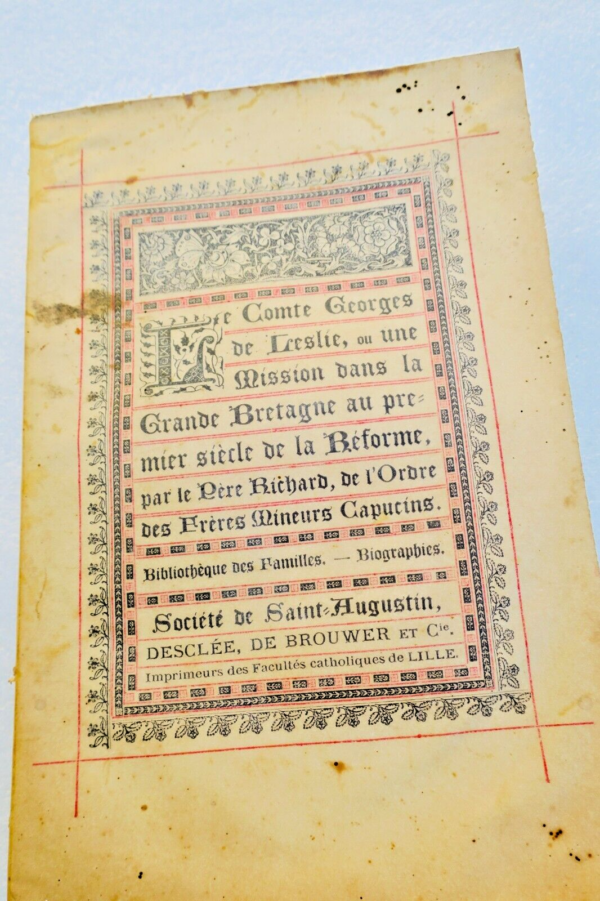 Le Comte Georges
de Leslie, ou une
Mission dans la
Grande Bretagne au pre-
mier siècle de la Réforme,
par le Père Richard, de l'Ordre
des Frères Mineurs Capucins.
Bibliothèque des Familles. — Biographies.
Société de Saint-Augustin,
DESCLÉE, DE BROUWER ET Cie.
Imprimeurs des Facultés catholiques de LILLE.